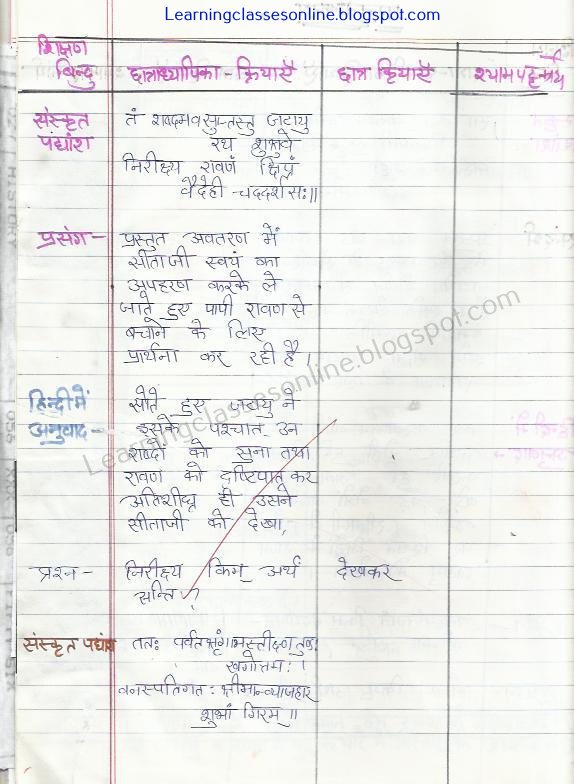 Learningclassesonline.blogspot.com
शिक्षण
बिन्दु छात्राध्यापिका - क्रियाएँ छात्र क्रियाएँ श्यामपट्ट कार्य
संस्कृत तं शब्दमवसुप्तस्तु जटायु
पद्यांश रथ शुश्रुवे
निरीक्ष्य रावणं क्षिप्रं
वैदेही च ददर्श सः॥
प्रसंग - प्रस्तुत अवतरण में
सीताजी स्वयं का
अपहरण करके ले
जाते हुए पापी रावण से
बचाने के लिए
प्रार्थना कर रही है।
हिन्दी में सोते हुए जटायु ने
अनुवाद - इसके पश्चात् उन
शब्दों को सुना तथा
रावण को दृष्टिपात कर
अतिशीघ्र ही उसने
सीताजी को देखा,
Learningclassesonline.blogspot.com
प्रश्न - निरीक्ष्य किम् अर्थ देखकर
सन्ति?
संस्कृत पद्यांश ततः पर्वतश्रृंगाभस्तीक्ष्ण तुण्डः
खगोत्तमः।
वनस्पतिगतः श्रीमान्व्याजहार
शुभां गिरम्॥